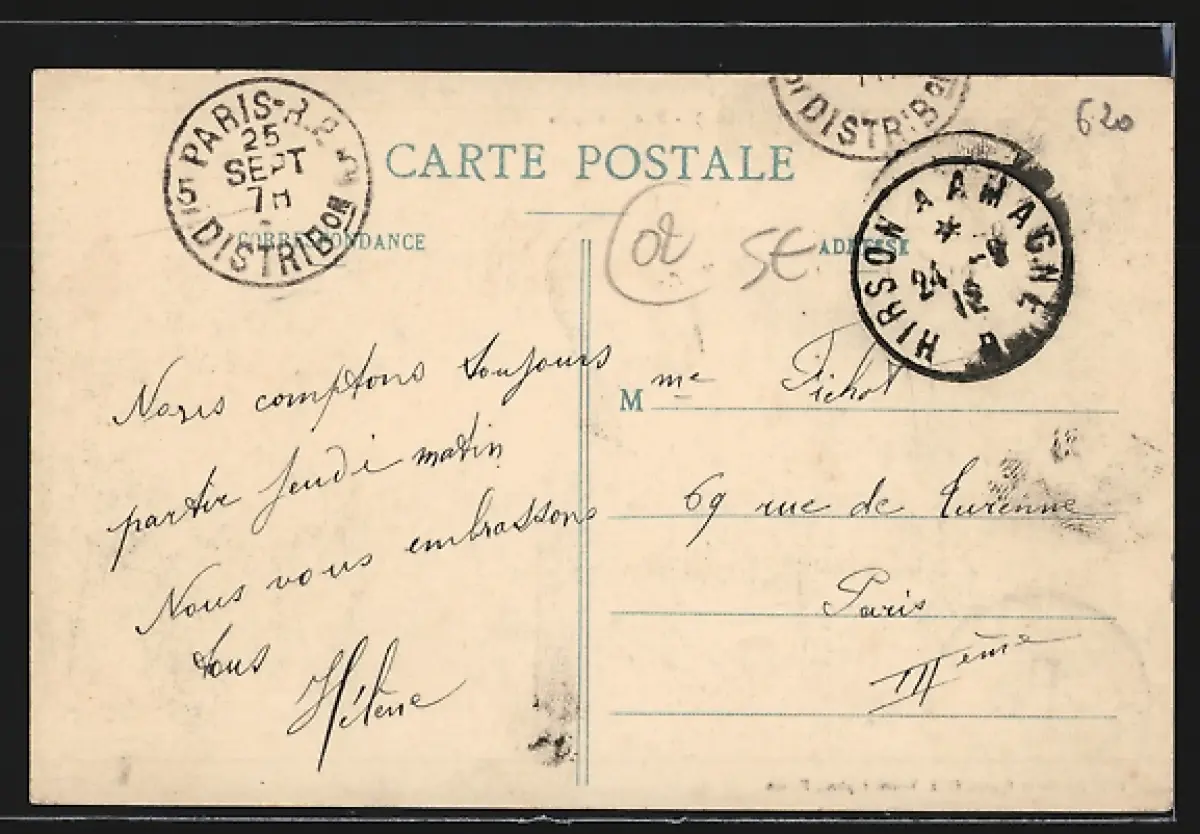 PARIS-R.P.
25
SEPT
7H
5
DISTRIBON
DISTRIBON
620
CARTE POSTALE
CORRESPONDANCE
ADRESSE
02
5€
HIRSON A AMAGNE
*
24 -9
12
Nous comptons toujours
partir jeudi matin
Nous vous embrassons
tous
Hélène
M me Fichot
69 rue de Turenne
Paris
IIIème